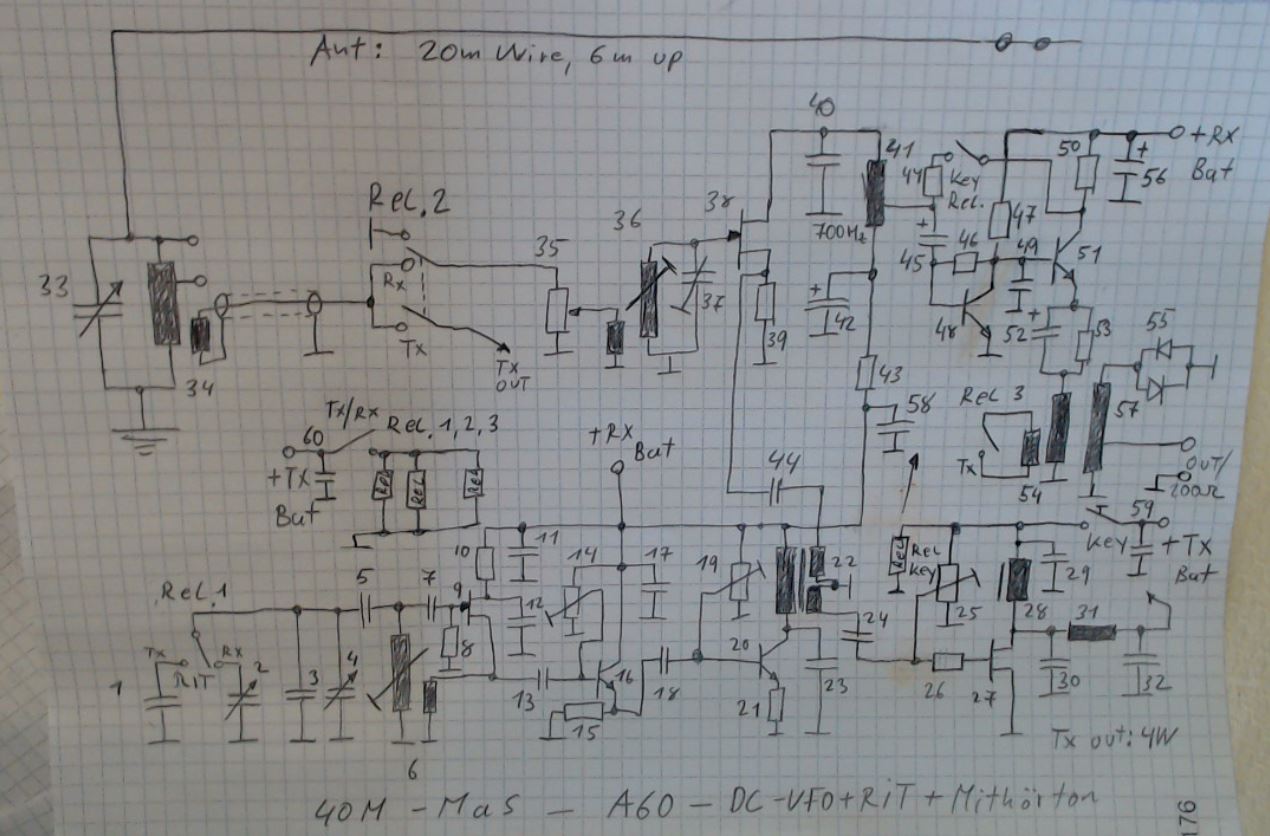 Ant: 20m Wire, 6m up
40
+RX
Bat
41
44
Key
Rel.
50
56
47
38
36
35
Rel.2
Rx
Tx
TX
OUT
33
34
37
39
700Hz
42
45
46
49
51
48
52
53
55
43
58
Rel 3
Tx
57
54
OUT/
200Ω
60
Tx/Rx
Rel.1,2,3
+TX
Bat
Rel
Rel
Rel
+RX
Bat
44
59
Key
+Tx
Bat
10
11
14
17
19
22
Rel
Key
25
29
28
31
Rel.1
5
7
9
12
8
24
Tx
RX
RIT
1
2
3
4
13
16
18
20
23
26
27
30
32
15
21
6
Tx out: 4W
40M - MaS - A60 - DC-VFO+RiT+Mithörton
76